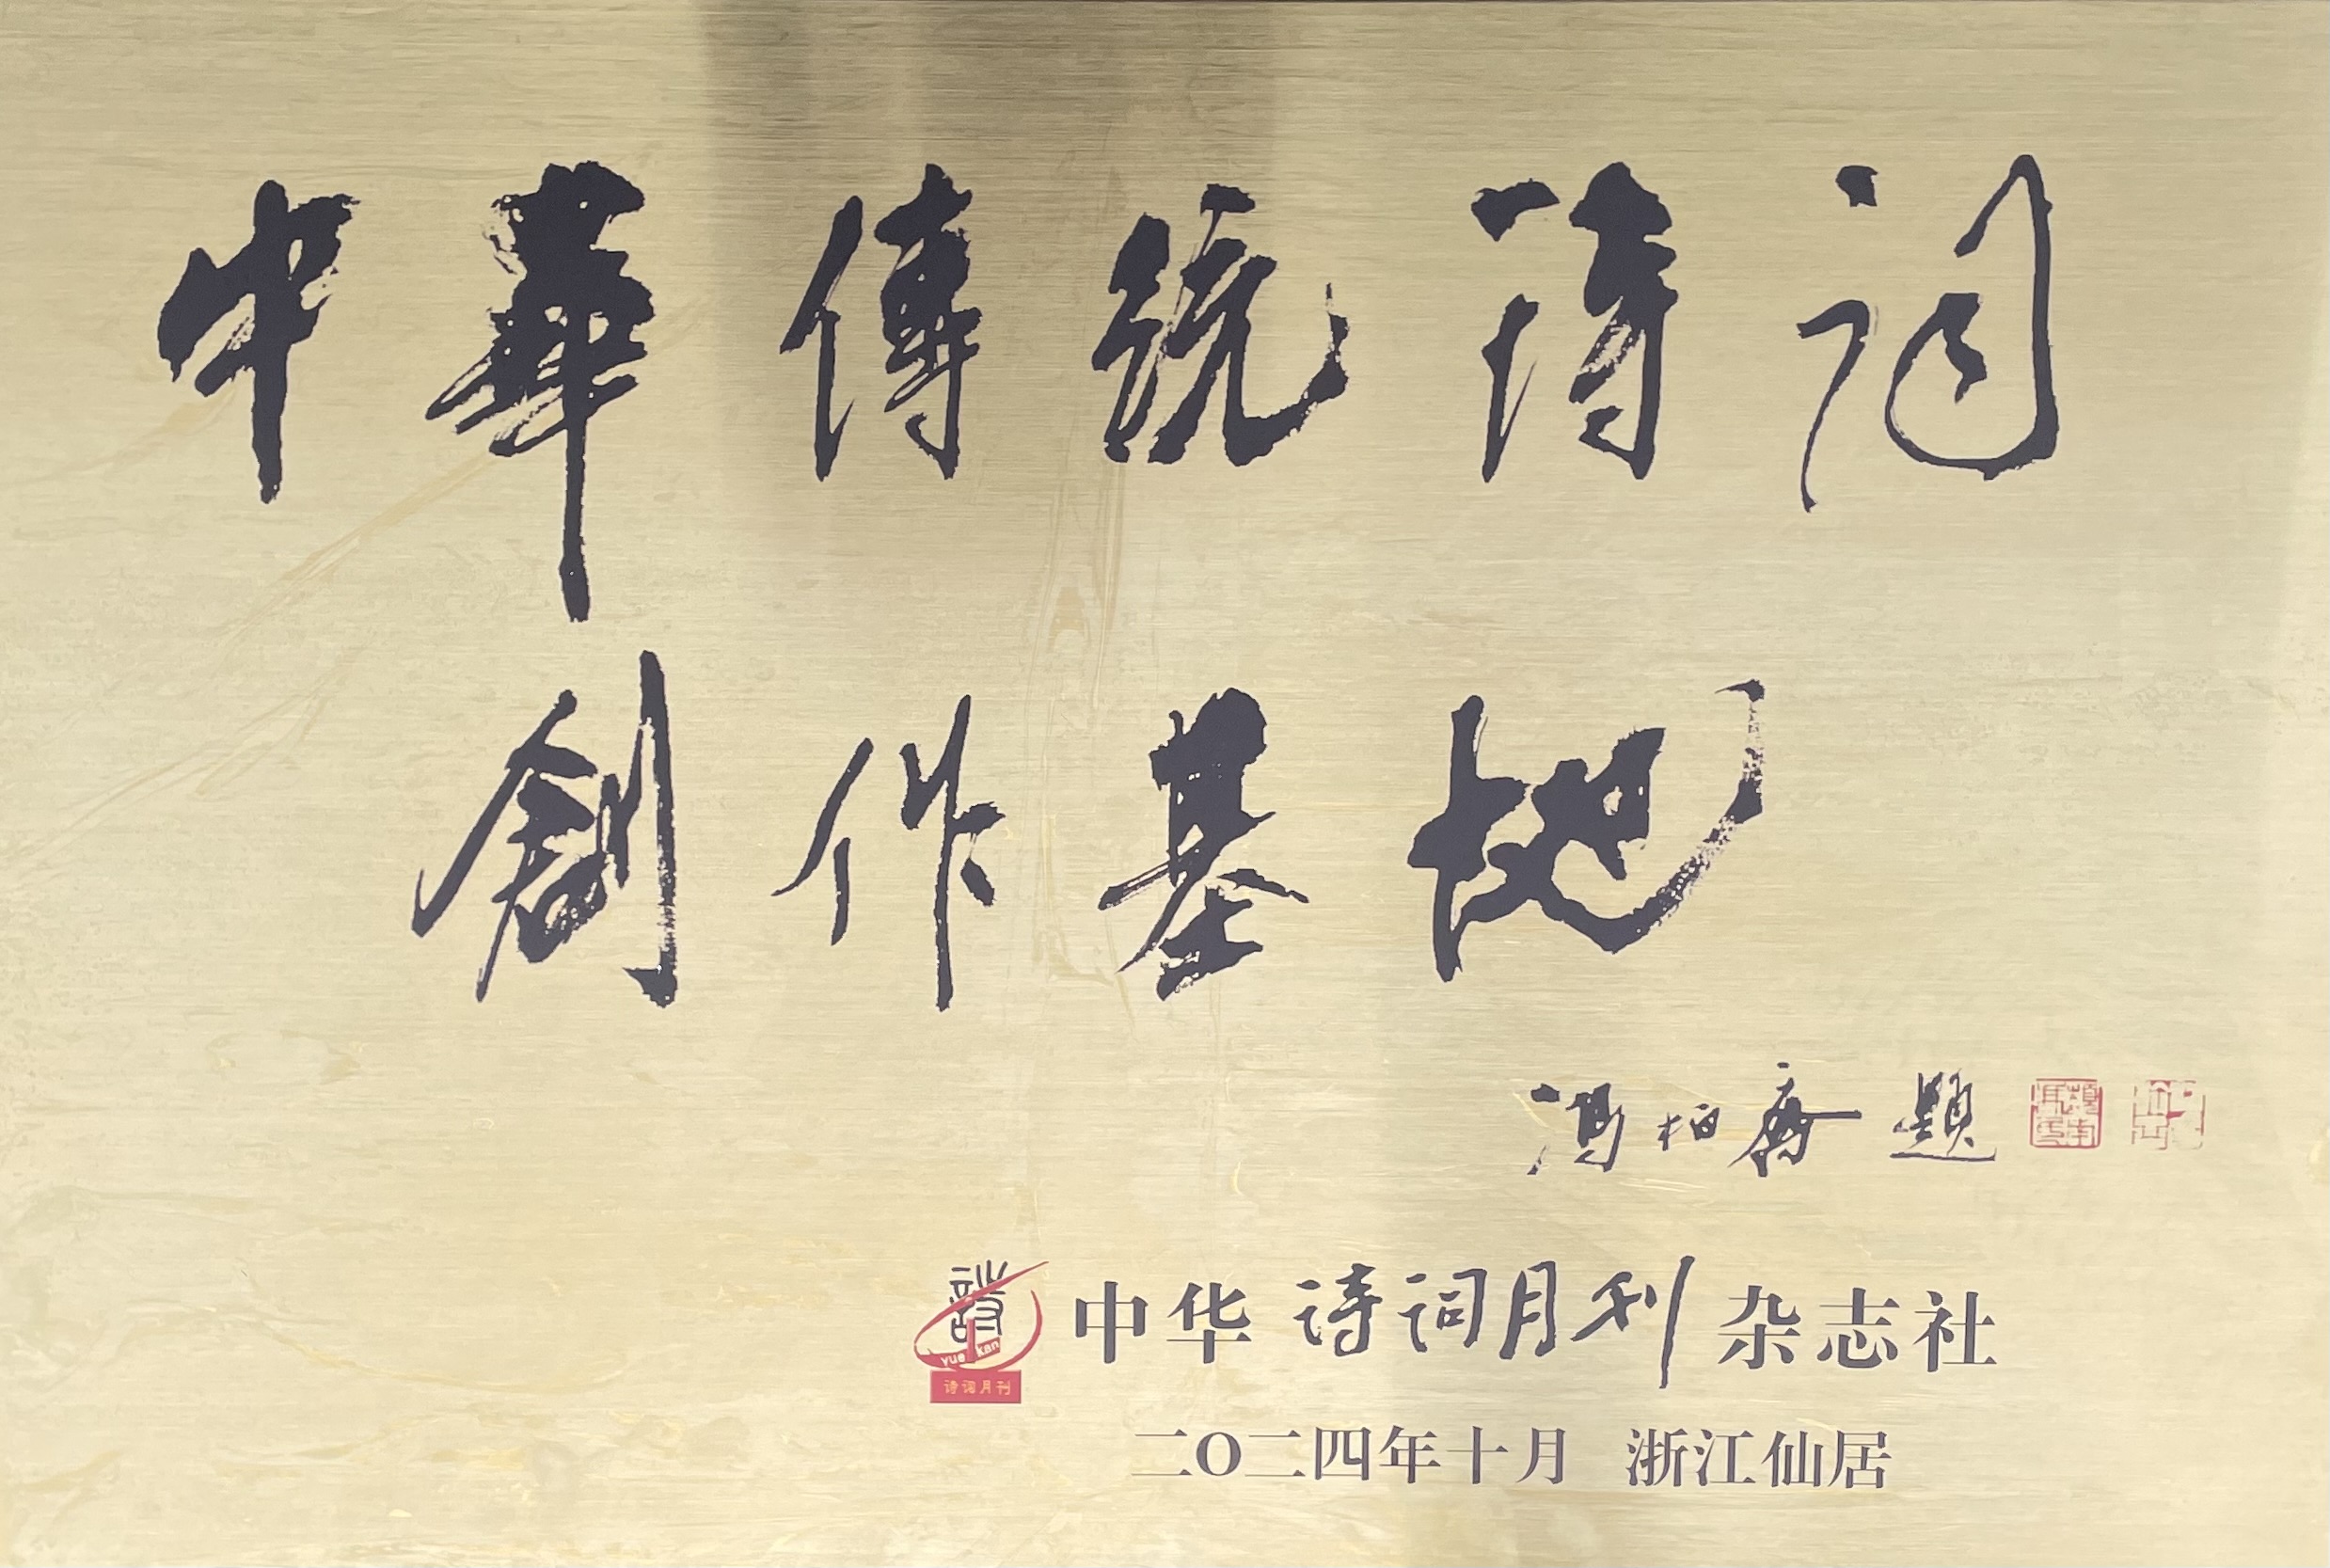 中華傳統诗词
創作基地
馮柏齋 題
yue kan
诗词月刊
中华诗词月刊杂志社
二〇二四年十月 浙江仙居